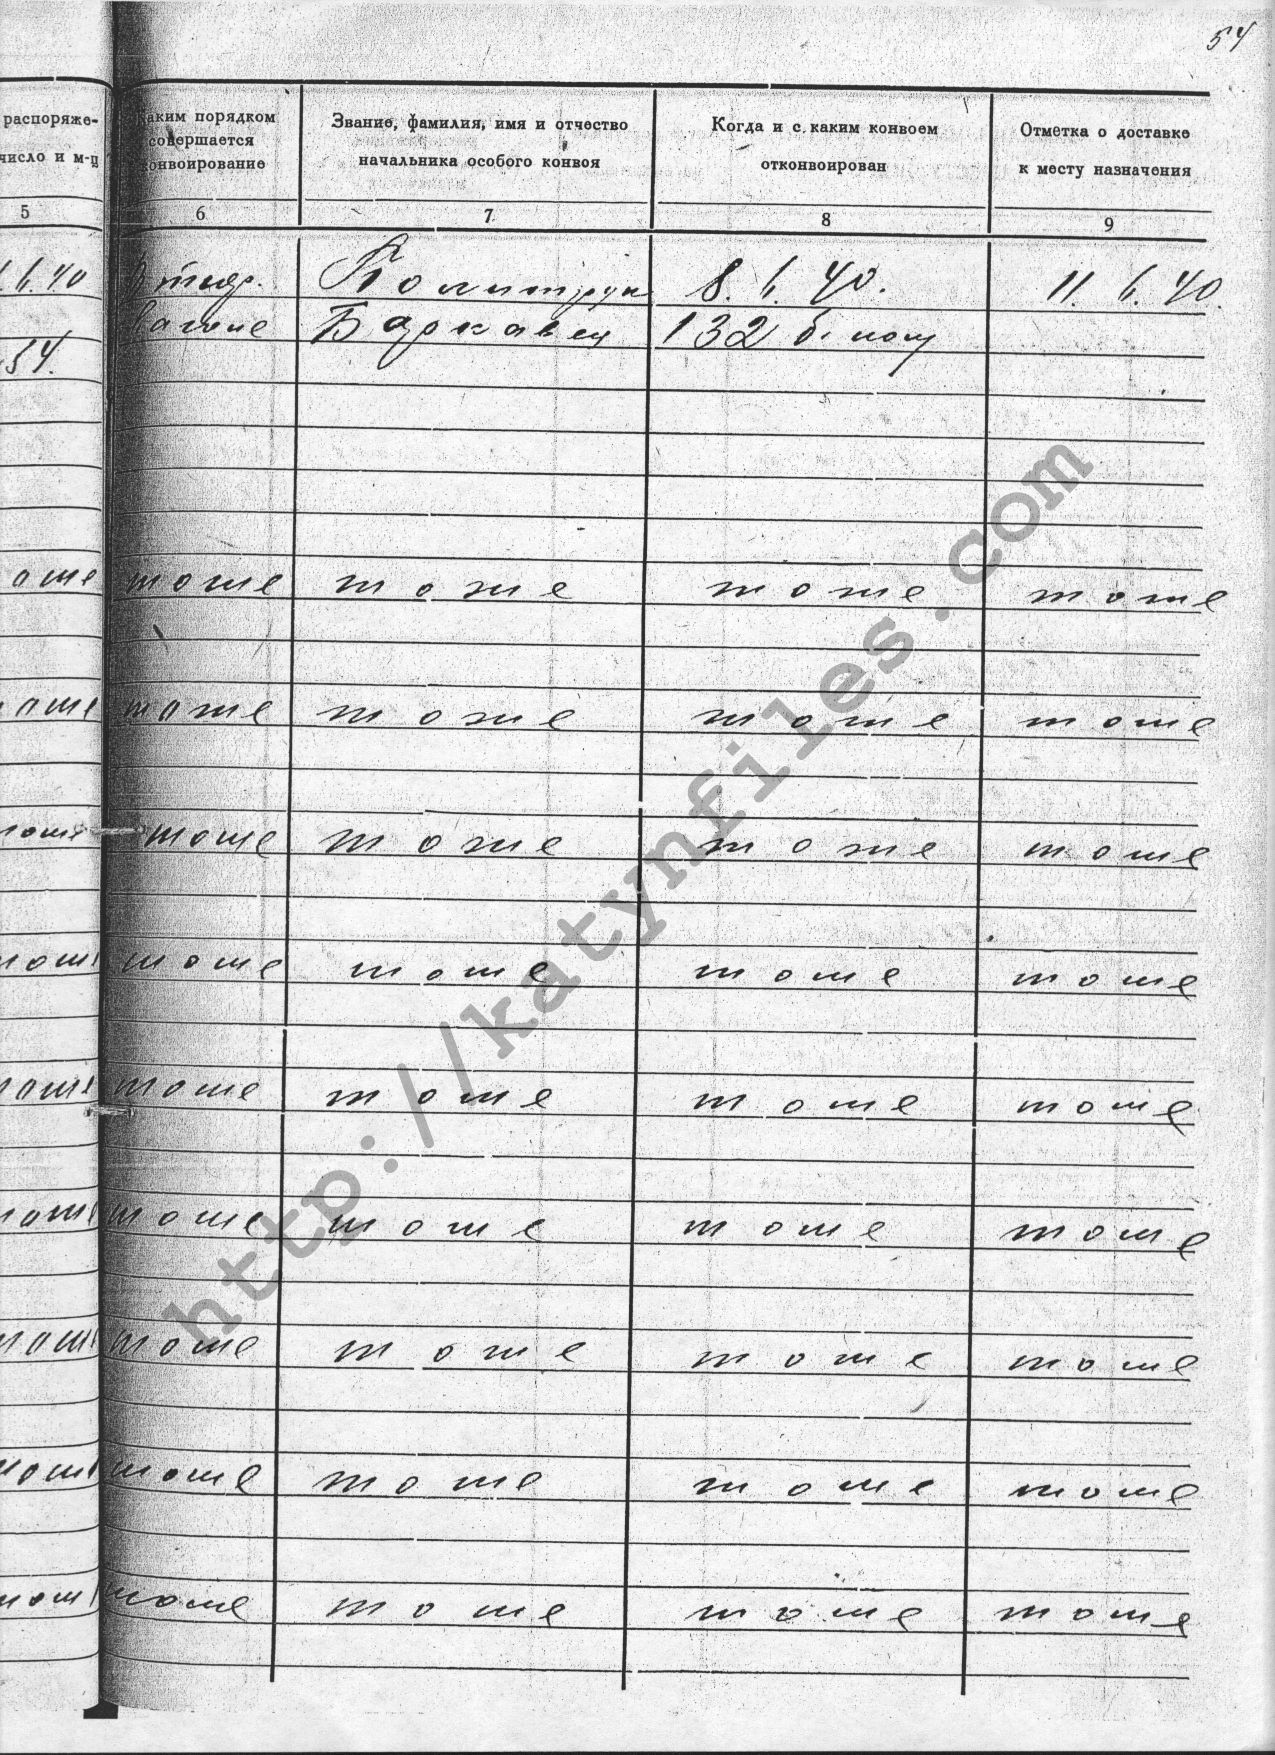 54
распоряже-
число и м-ц
5
Каким порядком
совершается
конвоирование
6
Звание, фамилия, имя и отчество
начальника особого конвоя
7
Когда и с каким конвоем
отконвоирован
8
Отметка о доставке
к месту назначения
9
.6.40 В тюр. Политрук 8.6.40. 11.6.40.
вагоне Барковец 132 б.
54.
оже тоже тоже тоже тоже
оже тоже тоже тоже тоже
тоже тоже тоже тоже тоже
тоже тоже тоже тоже тоже
тоже тоже тоже тоже тоже
тоже тоже тоже тоже тоже
тоже тоже тоже тоже тоже
тоже тоже тоже тоже тоже
тоже тоже тоже тоже тоже
http://katynfiles.com